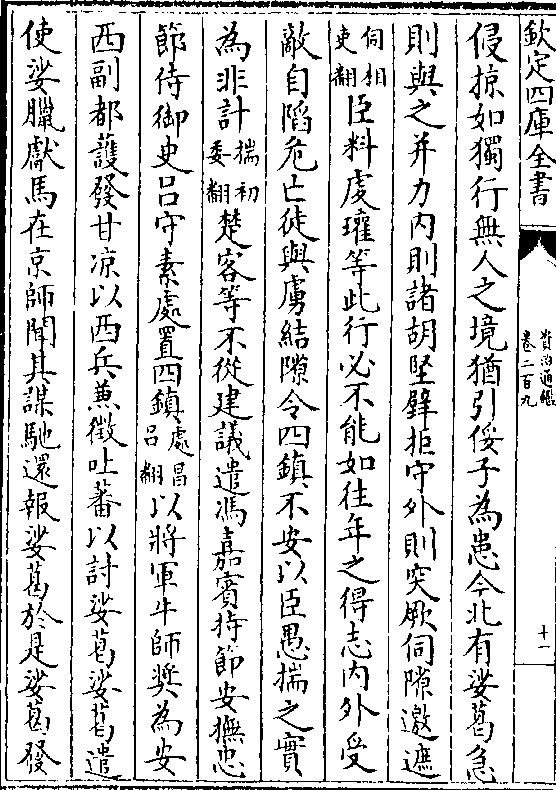 欽定四庫全書
資治通鑑
卷二百九
十一
侵掠如獨行無人之境猶引俀子為患今北有娑葛急
則與之并力内則諸胡堅壁拒守外則突厥伺隙邀遮
伺相
吏翻
臣料虔瓘等此行必不能如往年之得志内外受
敵自陷危亡徒與虜結隙令四鎮不安以臣愚揣之實
為非計
揣初
委翻
楚客等不從建議遣馮嘉賓持節安撫忠
節侍御史吕守素處置四鎮
處昌
吕翻
以將軍牛師奨為安
西副都䕶發甘凉以西兵兼徵吐蕃以討娑葛娑葛遣
使娑臘獻馬在京師聞其謀馳還報娑葛於是娑葛發